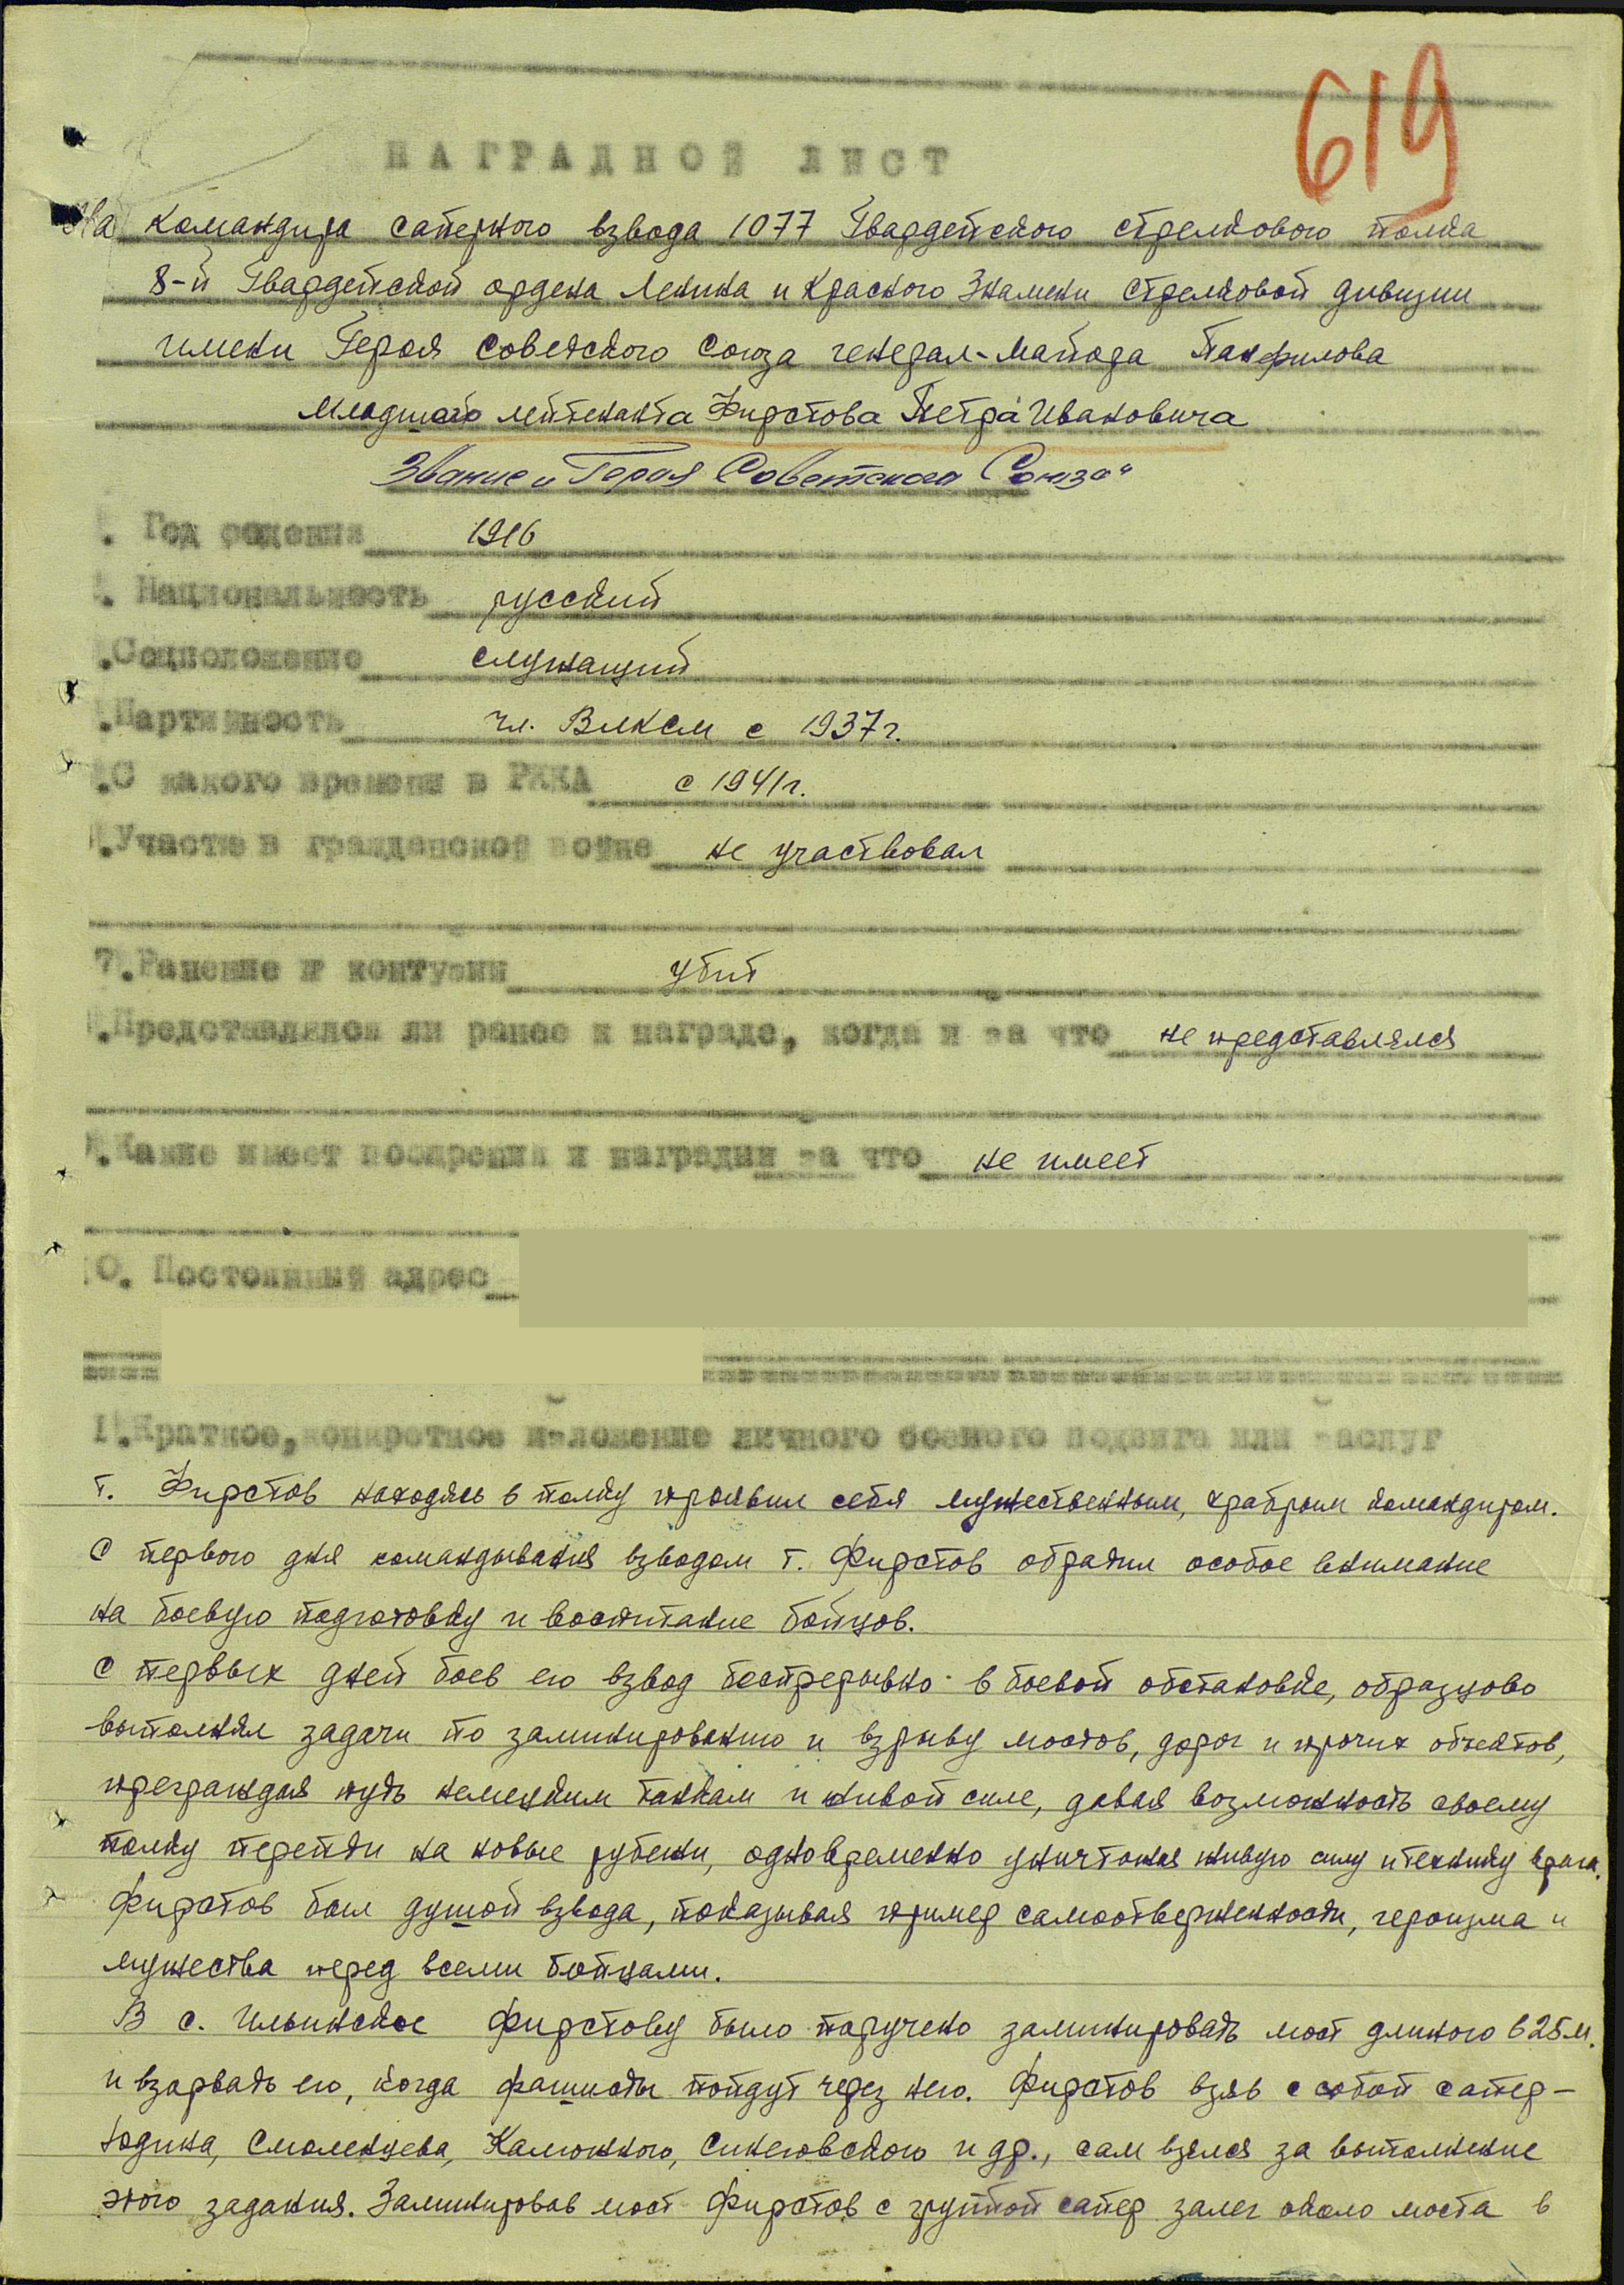 619
НАГРАДНОЙ ЛИСТ
На командира саперного взвода 1077 Гвардейского стрелкового полка
8-й Гвардейской ордена Ленина и Красного Знамени стрелковой дивизии
имени Героя Советского Союза генерал-майора Панфилова
младшего лейтенанта Фирстова Петра Ивановича
Звание "Героя Советского Союза"
. Год рождения 1916
. Национальность русский
. Соцположение служащий
. Партийность чл. ВЛКСМ с 1937 г.
. С какого времени в РККА с 1941 г.
. Участие в гражданской войне не участвовал
7. Ранение и контузии убит
. Представлялся ли ранее к награде, когда и за что не представлялся
. Какие имеет поощрения и награды и за что не имеет
10. Постоянный адрес
11. Краткое, конкретное изложение личного боевого подвига или заслуг
т. Фирстов находясь в полку проявил себя мужественным, храбрым командиром.
С первого дня командывания взводом т. Фирстов обратил особое внимание
на боевую подготовку и воспитание бойцов.
С первых дней боев его взвод беспрерывно в боевой обстановке, образцово
выполнял задачи по заминированию и взрыву мостов, дорог и прочих объектов,
преграждая путь немецким танкам и живой силе, давая возможность своему
полку перейти на новые рубежи, одновременно уничтожая живую силу и технику врага.
Фирстов был душой взвода, показывая пример самоотверженности, героизма и
мужества перед всеми бойцами.
В с. Ильинское Фирстову было поручено заминировать мост длиною в 25 м.
и взорвать его, когда фашисты пойдут через него. Фирстов взяв с собой сапер-
Юдина, Смоленцева, Калюжного, Синеговского и др., сам взялся за выполнение
этого задания. Заминировав мост Фирстов с группой сапер залег около моста в